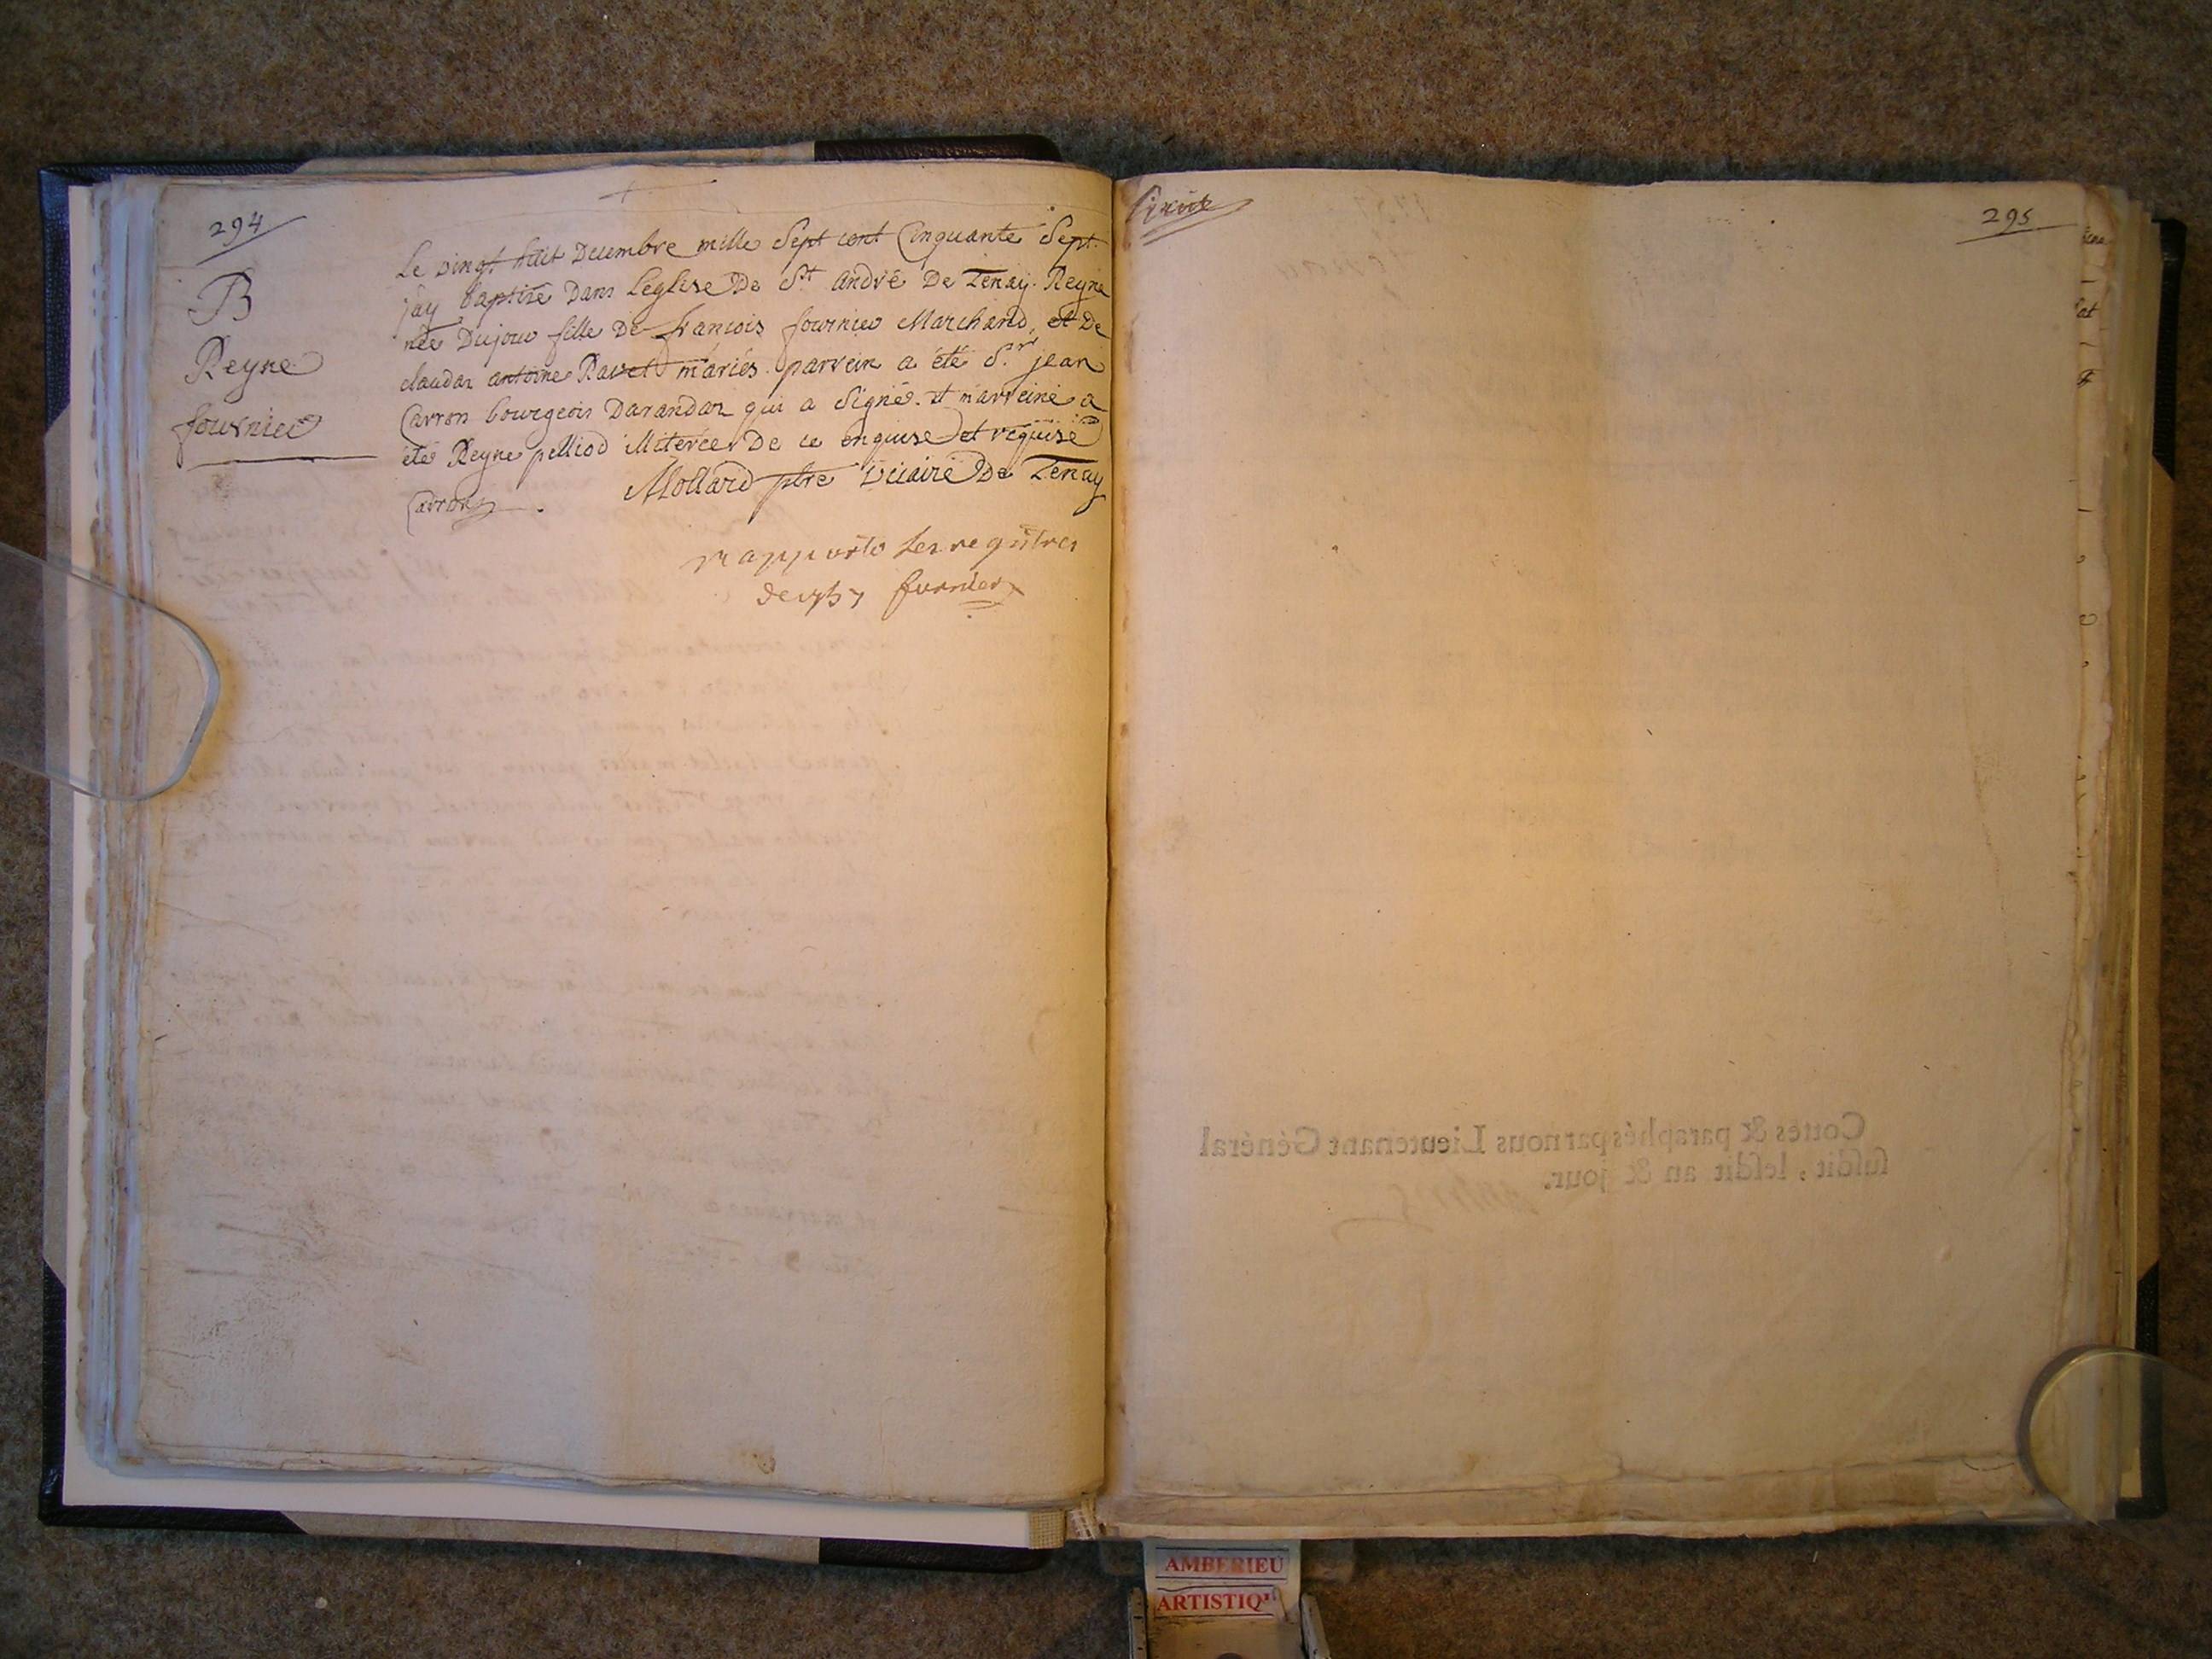 294
B
Reyne
fournier
Le vingt huit Decembre mille Sept cent Cinquante Sept.
j'ay baptisé Dans Leglise De St andré De Tenay. Reyne
née Dujour fille De francois fournier Marchand, et De
claudaz antoine Ravet mariés. parrein a été Sr. jean
Carron bourgeois Darandaz qui a Signé. et marreine a
été Reyne pelliod illiterée De ce enquise et requise
Mollard ptre Vicaire De Tenay
Carron
rapporté les registres
de 1757 furnier
295
Cottés & paraphés par nous Lieutenant Général
susdit, lesdit an & jour.
AMBERIEU
ARTISTIQ